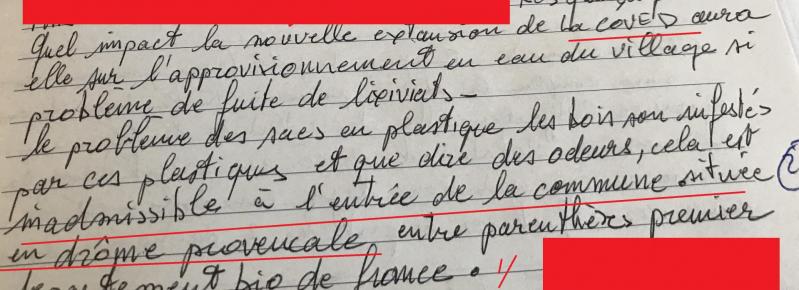 Quel impact la nouvelle expansion de la COVED aura
elle sur l'approvisionnement en eau du village si
problème de fuite de lixiviats_
le problème des sacs en plastique les bois son infestés
par ces plastiques et que dire des odeurs, cela est
inadmissible à l'entrée de la commune située 2
en drôme provencale entre parenthères premier
bio de france.